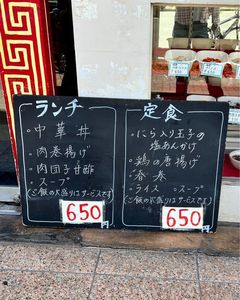 ランチ
・中華丼
・肉巻揚げ
・肉団子甘酢
・スープ
(ご飯の大盛りはサービスです)
650円
定食
・にら入り玉子の
塩あんかけ
・鶏の唐揚げ
・春巻
・ライス ・スープ
(ご飯の大盛りはサービスです)
650円